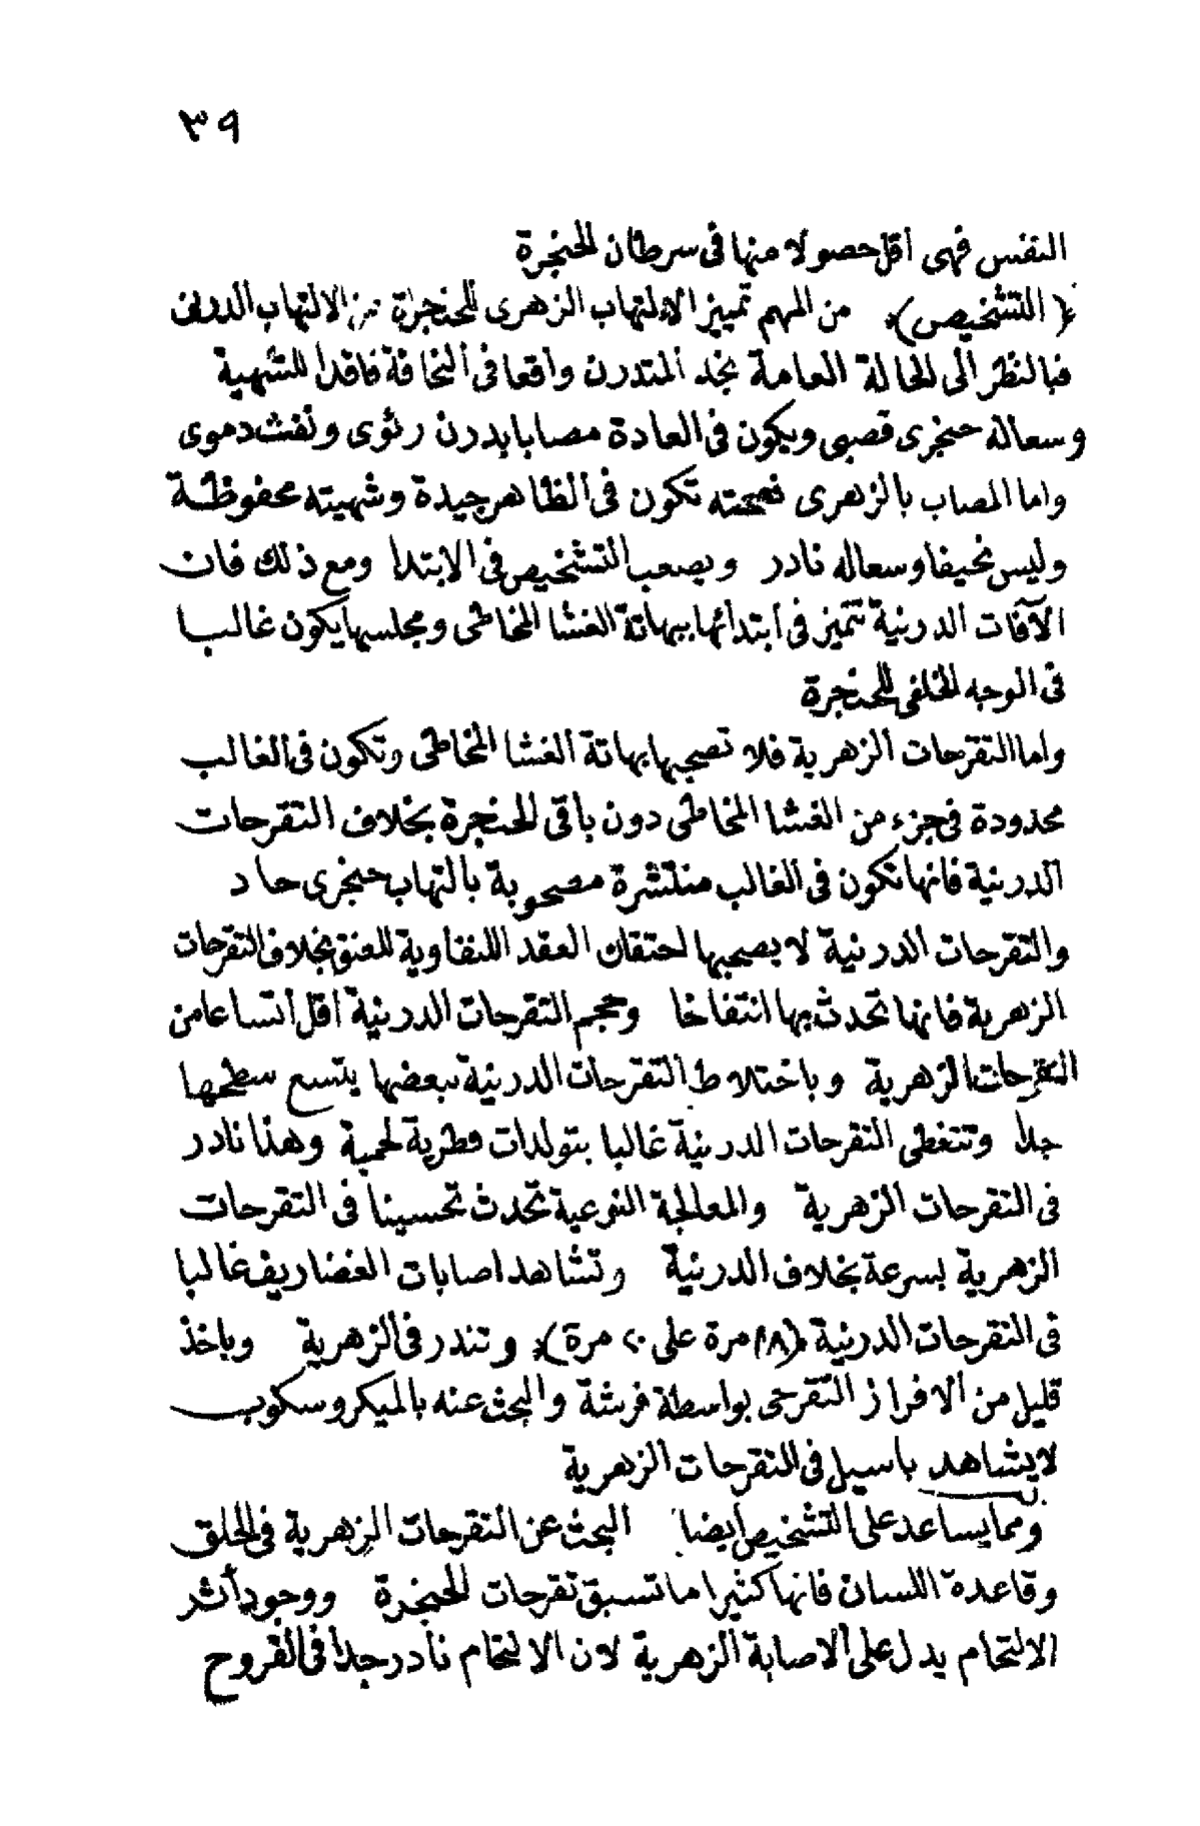 ٣٩
النفس فهى اقل حصولا منها فى سرطان الحنجرة
﴿ التشخيص ﴾ من المهم تمييز الالتهاب الزهرى للحنجرة من الالتهاب الدرنى
فبالنظر الى الحالة العامة نجد المتدرن واقعا فى النحافة فاقدا للشهية
وسعاله حنجرى قصبى ويكون فى العادة مصابا بدرن رئوى ونفث دموى
واما المصاب بالزهرى فصحته تكون فى الظاهر جيدة وشهيته محفوظة
وليس نحيفا وسعاله نادر ويصعب التشخيص فى الابتدا ومع ذلك فان
الآفات الدرنية تتميز فى ابتدائها ببهاتة الغشا المخاطى ومجلسها يكون غالبا
فى الوجه الخلفى للحنجرة
واما التقرحات الزهرية فلا تصحبها بهاتة الغشا المخاطى وتكون فى الغالب
محدودة فى جزء من الغشا المخاطى دون باقى الحنجرة بخلاف التقرحات
الدرنية فانها تكون فى الغالب منتشرة مصحوبة بالتهاب حنجرى حاد
والتقرحات الدرنية لا يصحبها احتقان العقد اللنفاوية للعنق بخلاف التقرحات
الزهرية فانها تحدث بها انتفاخا وحجم التقرحات الدرنية اقل اتساعا من
التقرحات الزهرية وباختلاط التقرحات الدرنية ببعضها يتسع سطحها
جدا وتتغطى التقرحات الدرنية غالبا بتولدات فطرية لحمية وهذا نادر
فى التقرحات الزهرية والمعالجة النوعية تحدث تحسينا فى التقرحات
الزهرية بسرعة بخلاف الدرنية وتشاهد اصابات الغضاريف غالبا
فى التقرحات الدرنية ﴿١٨ مرة على ٢٠ مرة﴾ وتندر فى الزهرية وباخذ
قليل من الافراز التقرحى بواسطة فرشة والبحث عنه بالميكروسكوب
لا يشاهد باسيل فى التقرحات الزهرية
ومما يساعد على التشخيص ايضا البحث عن التقرحات الزهرية فى الحلق
وقاعدة اللسان فانها كثيرا ما تسبق تقرحات الحنجرة ووجود أثر
الالتحام يدل على الاصابة الزهرية لان الالتحام نادر جدا فى القروح